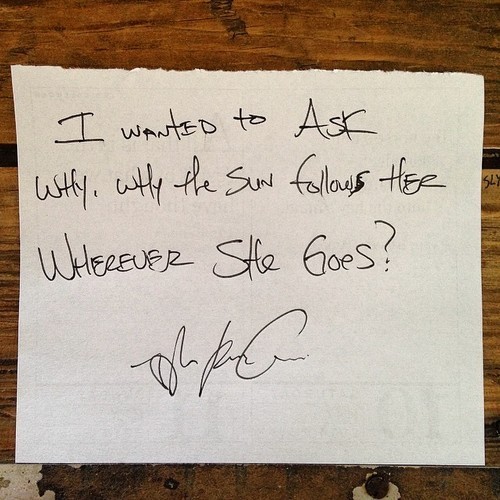 I WANTED to ASK
WHY. WHY the SUN follows HER
WHEREVER SHE GOES?